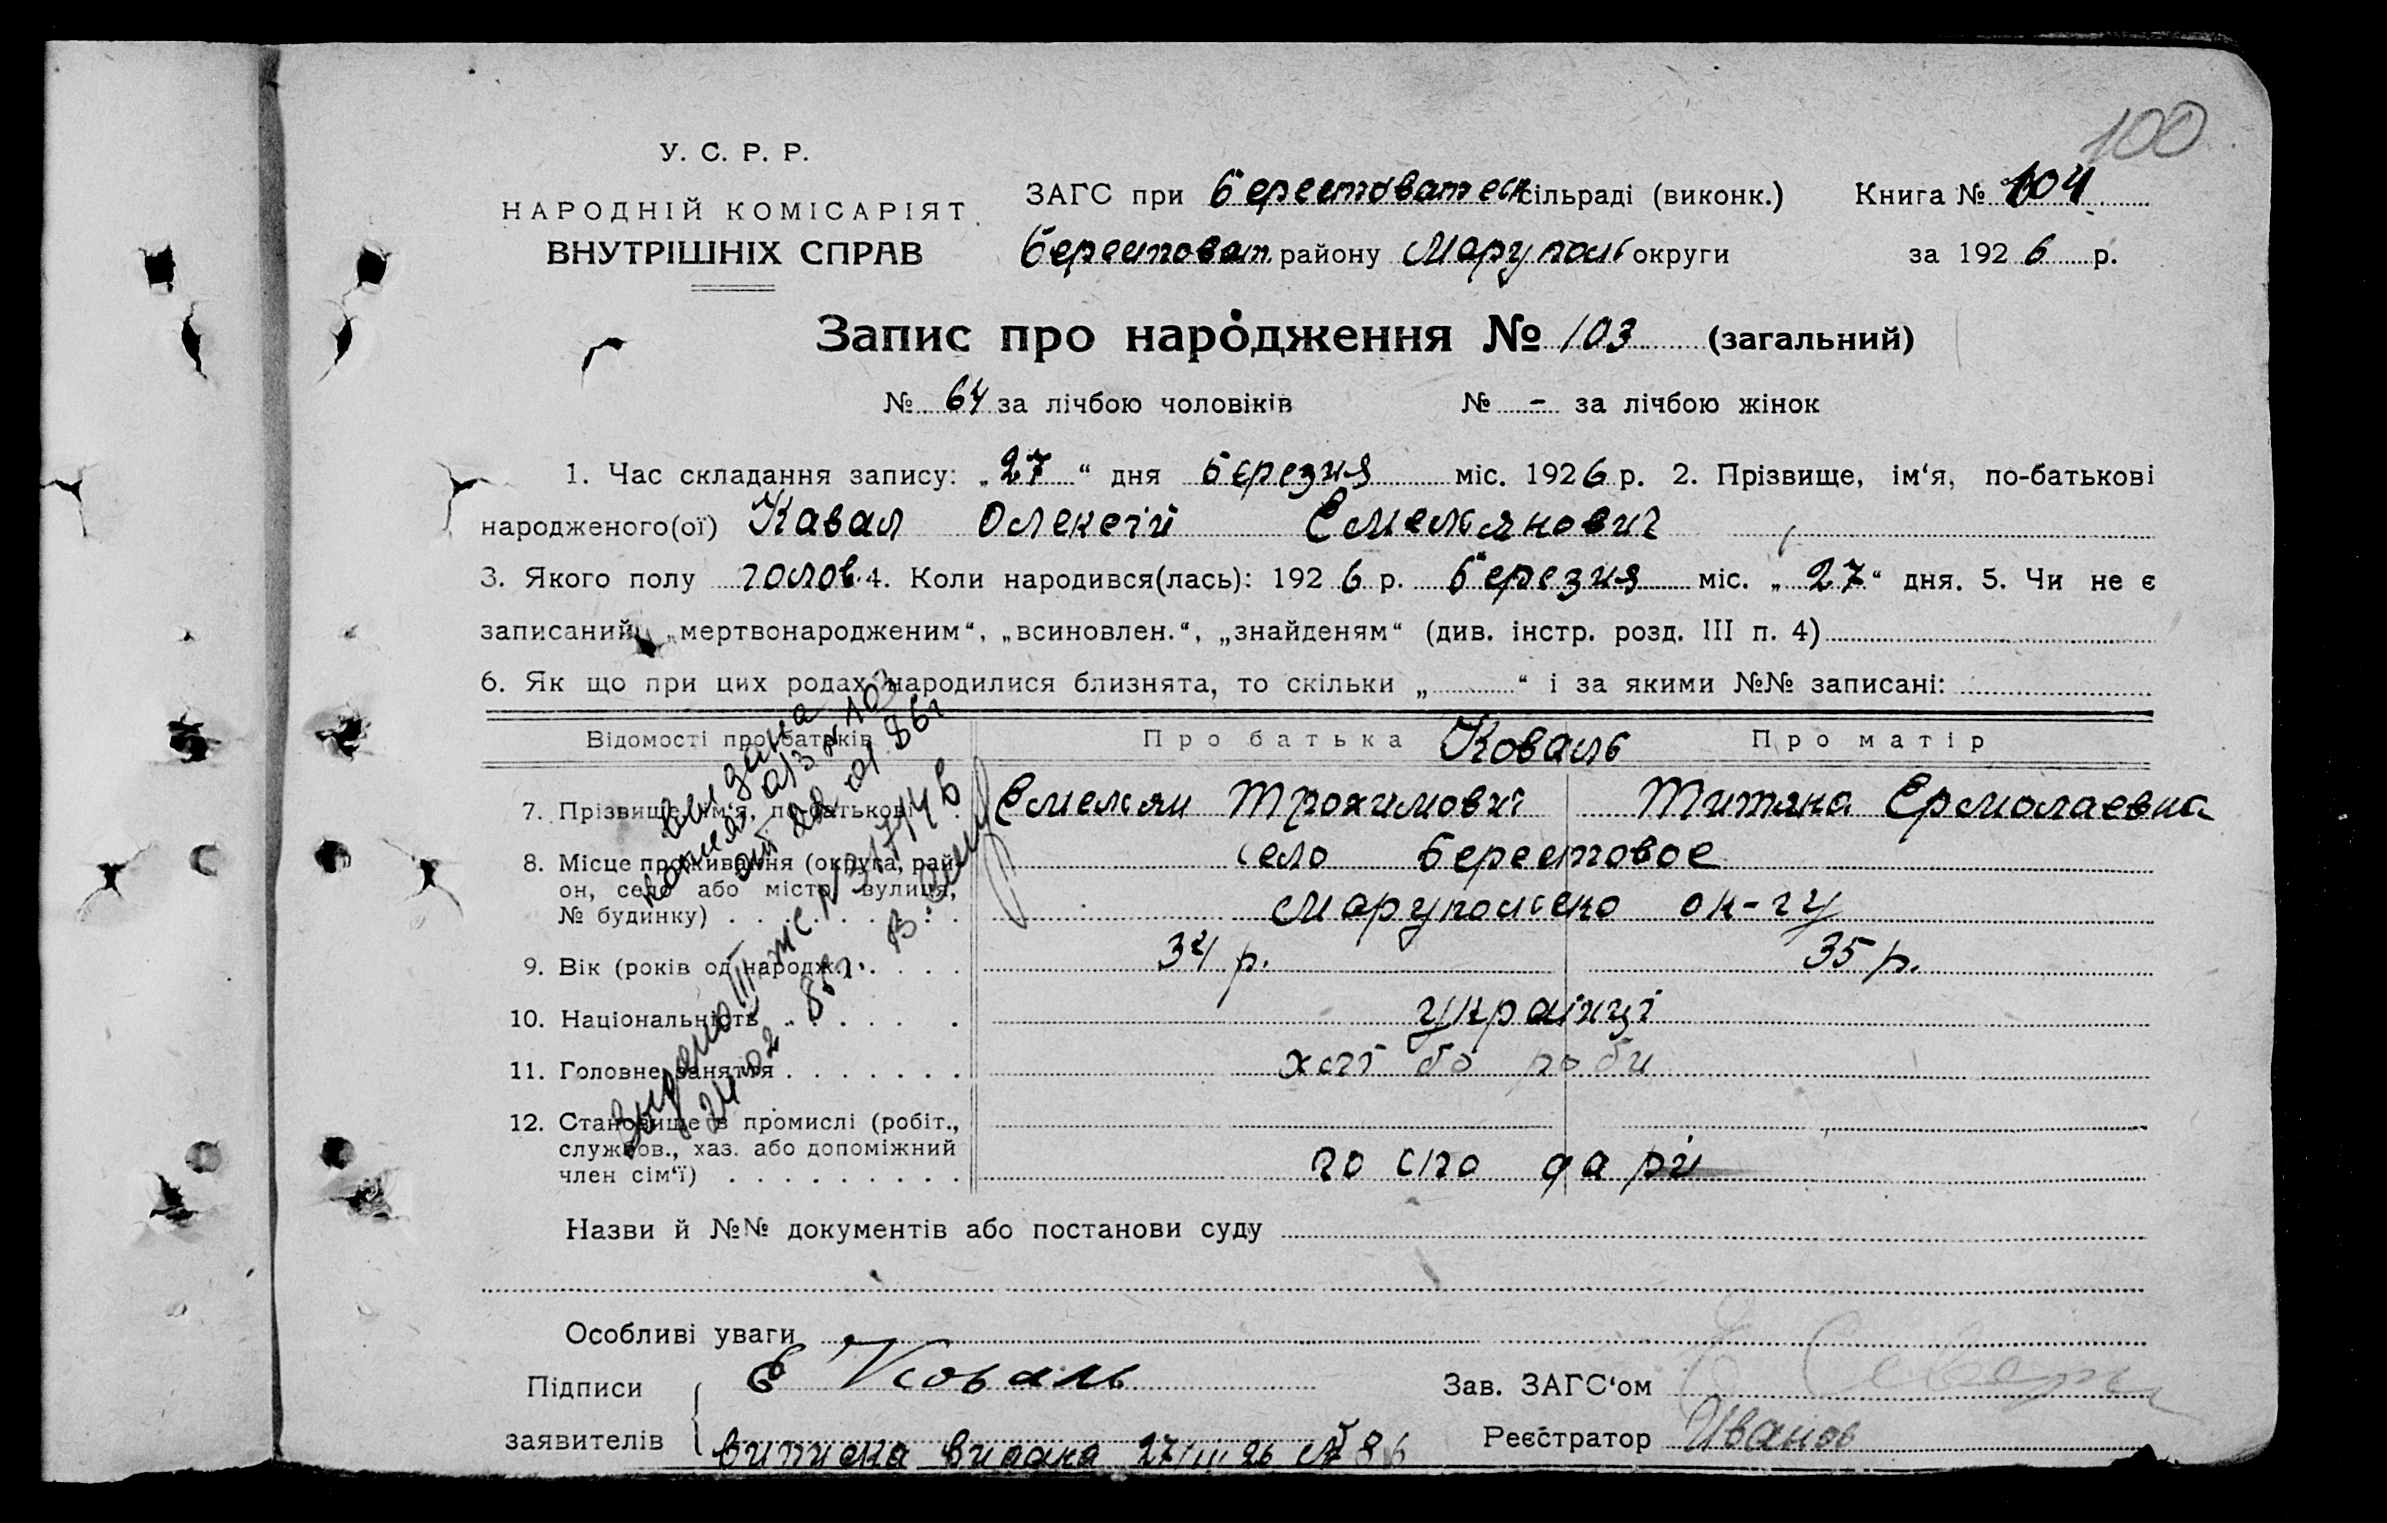 100
У. С. Р. Р.
НАРОДНІЙ КОМІСАРІЯТ
ВНУТРІШНІХ СПРАВ
ЗАГС при Берестоватеск сільраді (виконк.) Книга № 104
Берестоват. району Маруполь округи за 1926 р.
Запис про народження № 103 (загальний)
№ 64 за лічбою чоловіків № - за лічбою жінок
1. Час складання запису: „27“ дня березня міс. 1926 р. 2. Прізвище, ім‘я, по-батькові
народженого(ої) Кавал Олексій Емельянович
3. Якого полу чолов. 4. Коли народився(лась): 1926 р. березня міс. „27“ дня. 5. Чи не є
записаний „мертвонародженим“, „всиновлен.“, „знайденям“ (див. інстр. розд. III п. 4)
6. Як що при цих родах народилися близнята, то скільки „ “ і за якими №№ записані:
Відомості про батьків Про батька Коваль Про матір
7. Прізвище, ім‘я, по-батькові Емельян Трохимович Титяна Ермолаевна
8. Місце проживання (округа, рай-
он, село або місто, вулиця,
№ будинку)
село Берестовое
Маруполсько ок-гу
9. Вік (років од народж.) 34 р. 35 р.
10. Національність українці
11. Головне заняття хліборо би
12. Становище в промислі (робіт.,
службов., хаз. або допоміжний
член сім‘ї) го спо дарі
Назви й №№ документів або постанови суду
Особливі уваги
Підписи
заявителів
Е Коваль
виписка видана 27/III 26 № 86
Зав. ЗАГС‘ом
Реєстратор Иванов